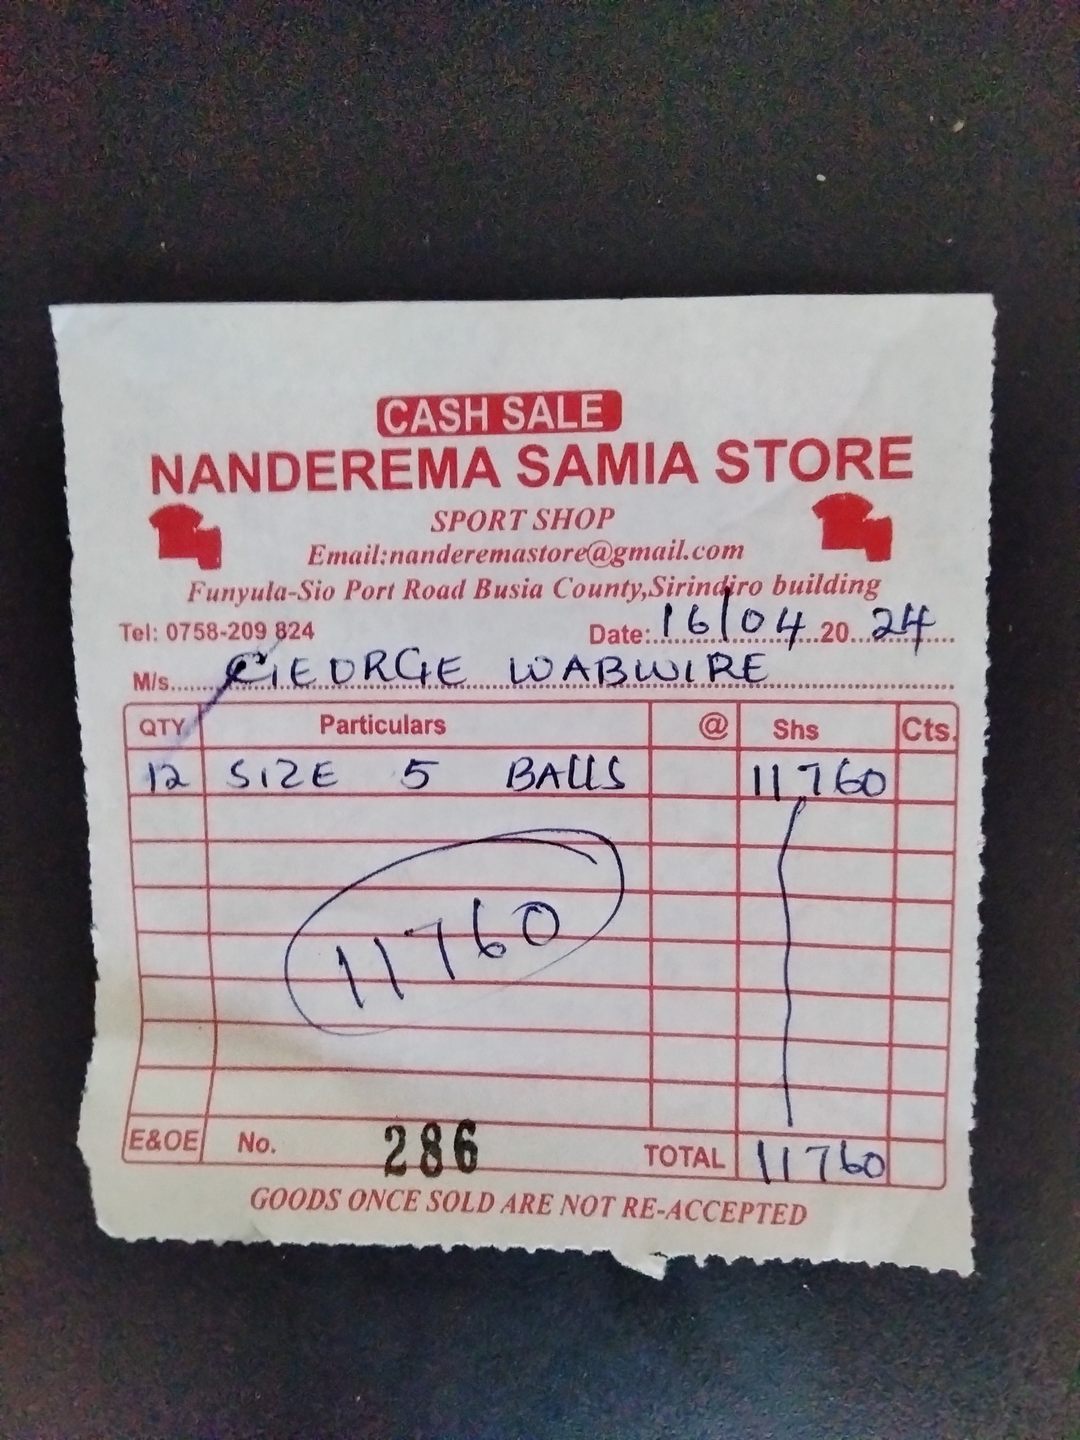 CASH SALE
NANDEREMA SAMIA STORE
SPORT SHOP
Email:nanderemastore@gmail.com
Funyula-Sio Port Road Busia County,Sirindiro building
Tel: 0758-209 824 Date: 16/04 20 24
M/s. GEORGE WABWIRE
QTY Particulars @ Shs Cts.
12 SIZE 5 BALLS 11760
11760
E&OE No. 286 TOTAL 11760
GOODS ONCE SOLD ARE NOT RE-ACCEPTED